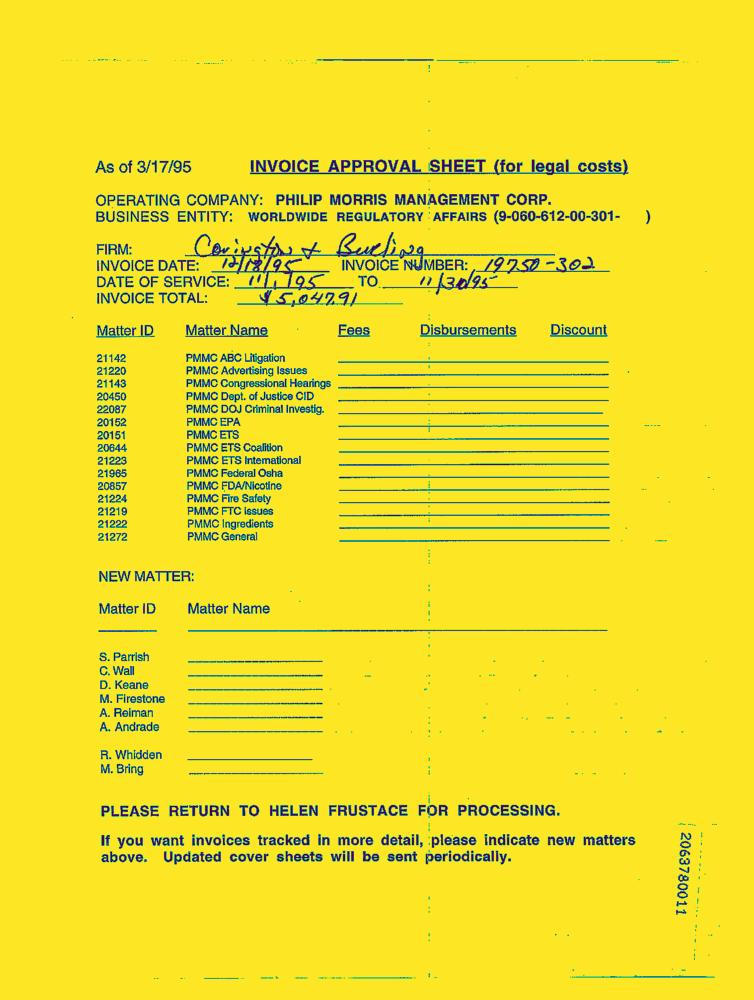 As of 3/17/95 INVOICE APPROVAL SHEET (for legal costs)
OPERATING COMPANY: PHILIP MORRIS MANAGEMENT CORP.
BUSINESS ENTITY: WORLDWIDE REGULATORY AFFAIRS (9-060-612-00-301- )
FIRM: Covington + Burling
INVOICE DATE: 12/18/95 INVOICE NUMBER: 19750-302
DATE OF SERVICE: 11/1/95 TO 11/30/95
INVOICE TOTAL: $5,047.91
Matter ID Matter Name Fees Disbursements Discount
21142 PMMC ABC Litigation
21220 PMMC Advertising Issues
21143 PMMC Congressional Hearings
20450 PMMC Dept. of Justice CID
22087 PMMC DOJ Criminal Investig.
20152 PMMC EPA
20151 PMMC ETS
20644 PMMC ETS Coalition
21223 PMMC ETS International
21965 PMMC Federal Osha
20857 PMMC FDA/Nicotine
21224 PMMC Fire Safety
21219 PMMC FTC Issues
21222 PMMC Ingredients
21272 PMMC General
NEW MATTER:
Matter ID Matter Name
S. Parrish
C. Wall
D. Keane
M. Firestone
A. Reiman
A. Andrade
R. Whidden
M. Bring
PLEASE RETURN TO HELEN FRUSTACE FOR PROCESSING.
If you want invoices tracked in more detail, please indicate new matters
above. Updated cover sheets will be sent periodically.
2063780011